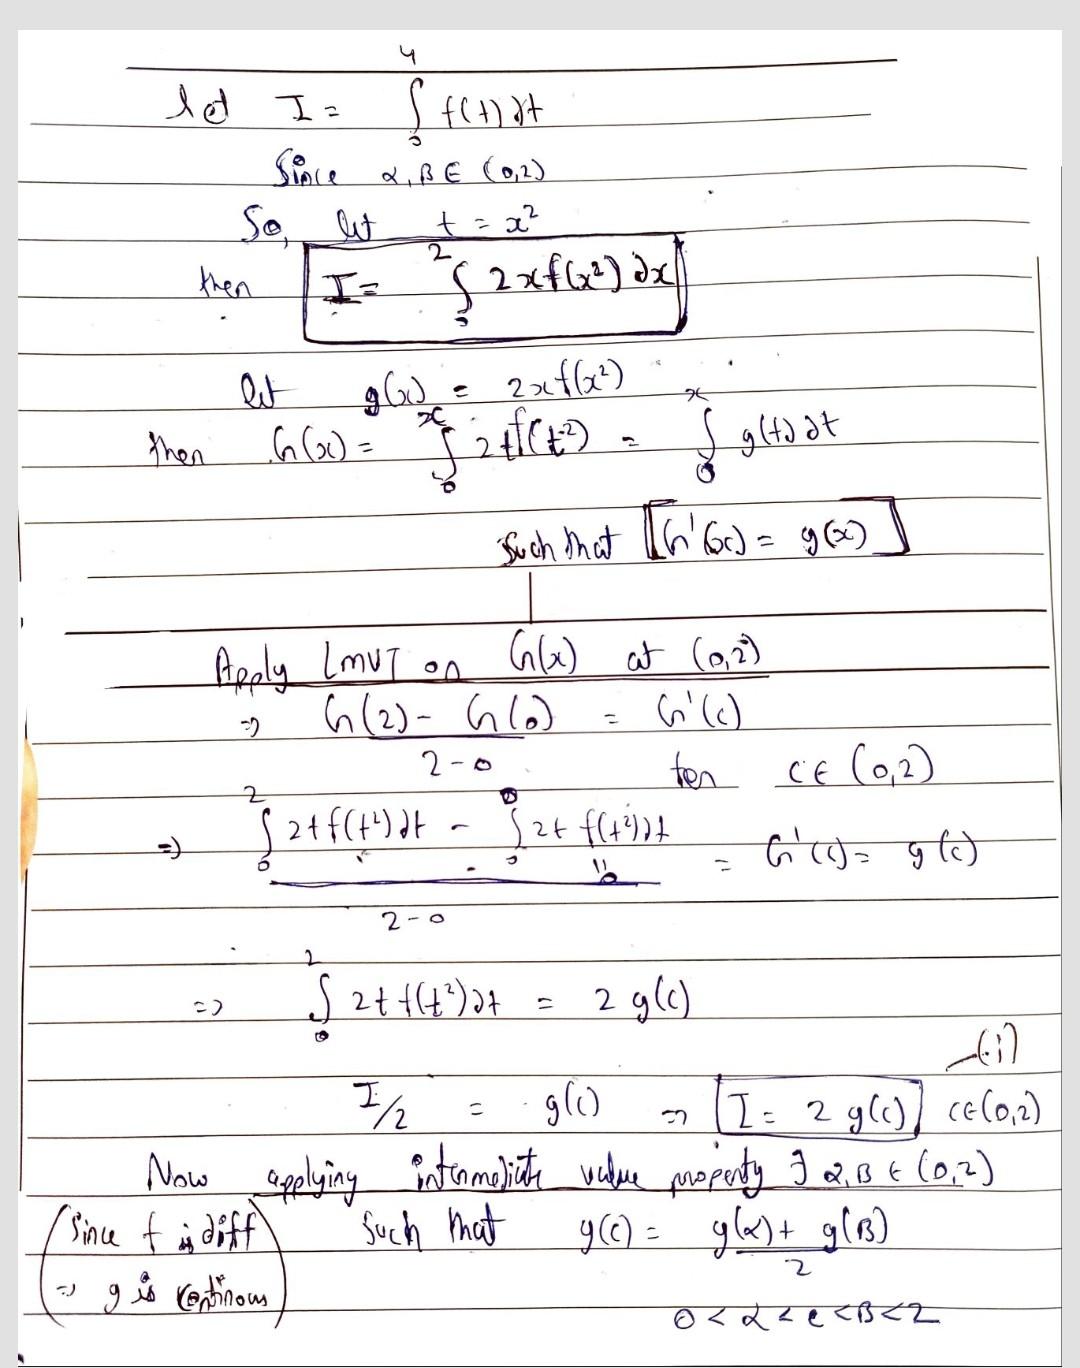 let I = ∫₀⁴ f(t) dt
Since α, β ∈ (0,2)
So, let t = x²
then I = ∫₀² 2x f(x²) dx
let g(x) = 2x f(x²)
then G(x) = ∫₀ˣ 2t f(t²) = ∫₀ˣ g(t) dt
such that [G'(x) = g(x)]
Apply LMVT on G(x) at (0,2)
=> (G(2) - G(0))/(2-0) = G'(c)
for c ∈ (0,2)
=> (∫₀² 2t f(t²) dt - ∫₀⁰ 2t f(t²) dt)/(2-0) = G'(c) = g(c)
=> ∫₀² 2t f(t²) dt = 2 g(c)
—(i)
I/2 = g(c) => [I = 2 g(c)] c ∈ (0,2)
Now applying intermediate value property ∃ α, β ∈ (0,2)
(Since f is diff such that g(c) = (g(α) + g(β))/2
=> g is continous)
0 < α < c < β < 2